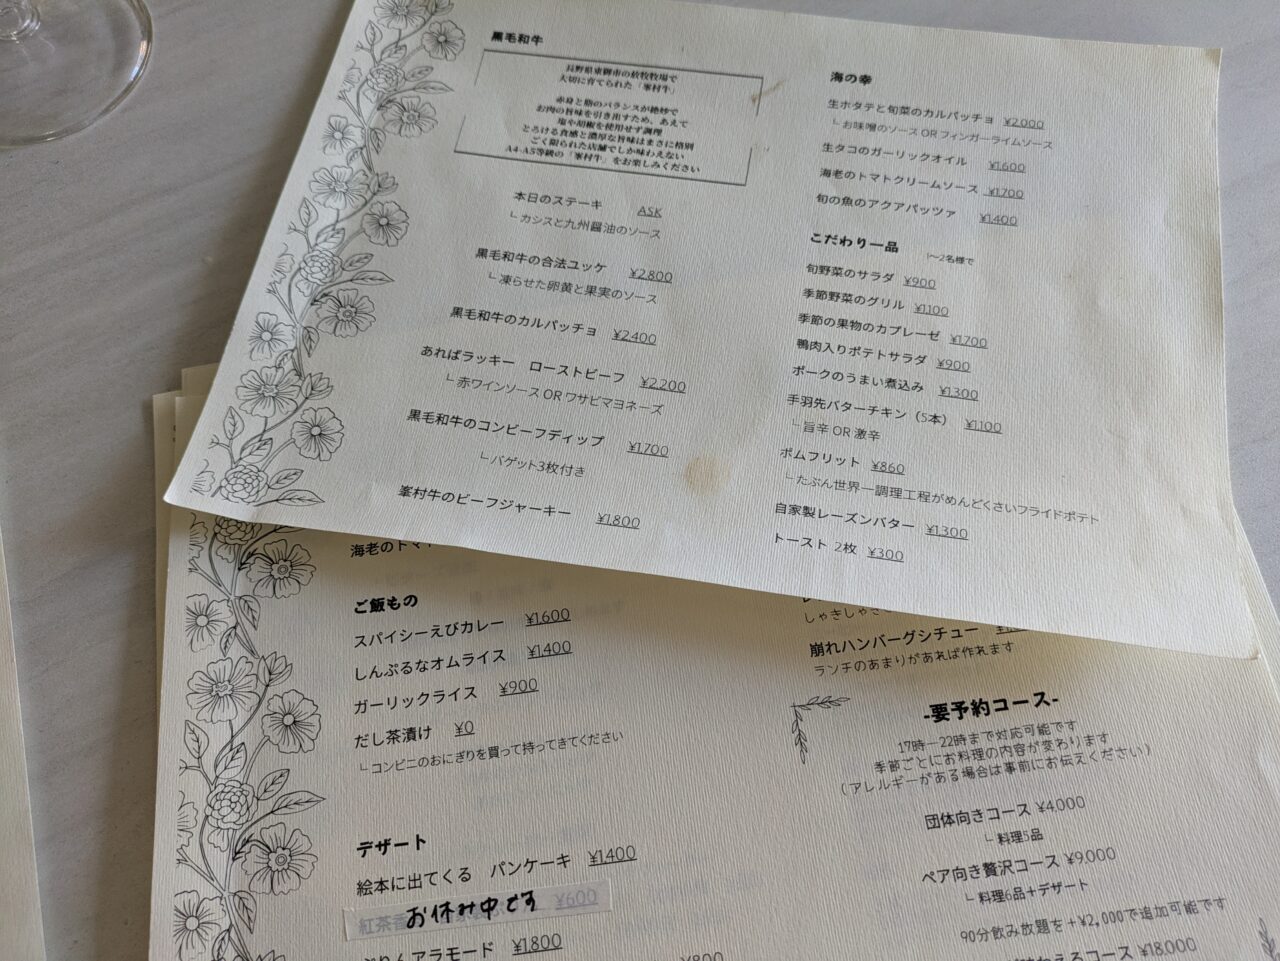 黒毛和牛
長野県東御市の放牧牧場で
大切に育てられた「峯村牛」
赤身と脂のバランスが絶妙で
お肉の旨味を引き出すため、あえて
塩や胡椒を使用せず調理
とろける食感と濃厚な旨味はまさに格別
ごく限られた店舗でしか味わえない
A4-A5等級の「峯村牛」をお楽しみください
本日のステーキ ASK
└ カシスと九州醤油のソース
黒毛和牛の合法ユッケ ¥2,800
└ 凍らせた卵黄と果実のソース
黒毛和牛のカルパッチョ ¥2,400
あればラッキー ローストビーフ ¥2,200
└ 赤ワインソース OR ワサビマヨネーズ
黒毛和牛のコンビーフディップ ¥1,700
└ バゲット3枚付き
峯村牛のビーフジャーキー ¥1,800
海の幸
生ホタテと旬菜のカルパッチョ ¥2,000
└ お味噌のソース OR フィンガーライムソース
生タコのガーリックオイル ¥1,600
海老のトマトクリームソース ¥1,700
旬の魚のアクアパッツァ ¥1,400
こだわり一品 1〜2名様で
旬野菜のサラダ ¥900
季節野菜のグリル ¥1,100
季節の果物のカプレーゼ ¥1,700
鴨肉入りポテトサラダ ¥900
ポークのうまい煮込み ¥1,300
手羽先バターチキン（5本） ¥1,100
└ 旨辛 OR 激辛
ポムフリット ¥860
└ たぶん世界一調理工程がめんどくさいフライドポテト
自家製レーズンバター ¥1,300
トースト 2枚 ¥300
海老のトマト
ご飯もの
スパイシーえびカレー ¥1,600
しんぷるなオムライス ¥1,400
ガーリックライス ¥900
だし茶漬け ¥0
└ コンビニのおにぎりを買って持ってきてください
デザート
絵本に出てくる パンケーキ ¥1,400
紅茶香 お休み中です ¥600
ぷりんアラモード ¥1,800
¥800
しゃきしゃき
崩れハンバーグシチュー
ランチのあまりがあれば作れます
-要予約コース-
17時—22時まで対応可能です
季節ごとにお料理の内容が変わります
（アレルギーがある場合は事前にお伝えください）
団体向きコース ¥4,000
└ 料理5品
ペア向き贅沢コース ¥9,000
└ 料理6品＋デザート
90分飲み放題を＋¥2,000で追加可能です
わえるコース ¥18,000